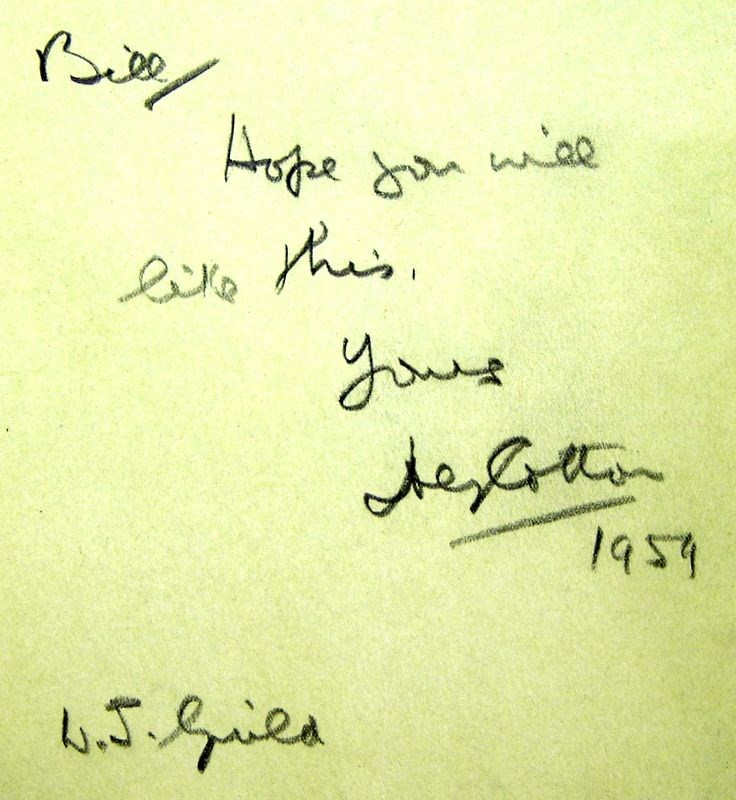 Bill/
Hope you will
like this.
Yours
Cotton
1959
W.J. Guild